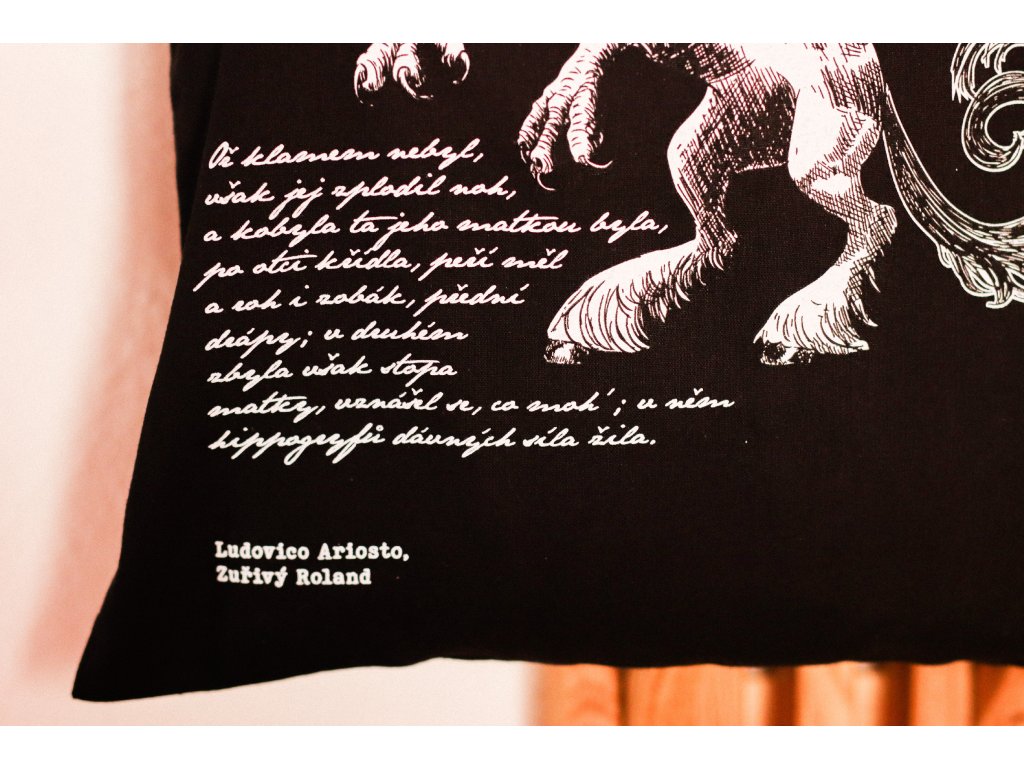 Oř klamem nebyl,
však jej zplodil noh,
a kobyla ta jeho matkou byla,
po otci křídla, peří měl
a roh i zobák, přední
drápy; v druhém
zbyla však stopa
matky, vznášel se, co moh'; v něm
hippogryfů dávných síla žila.
Ludovico Ariosto,
Zuřivý Roland